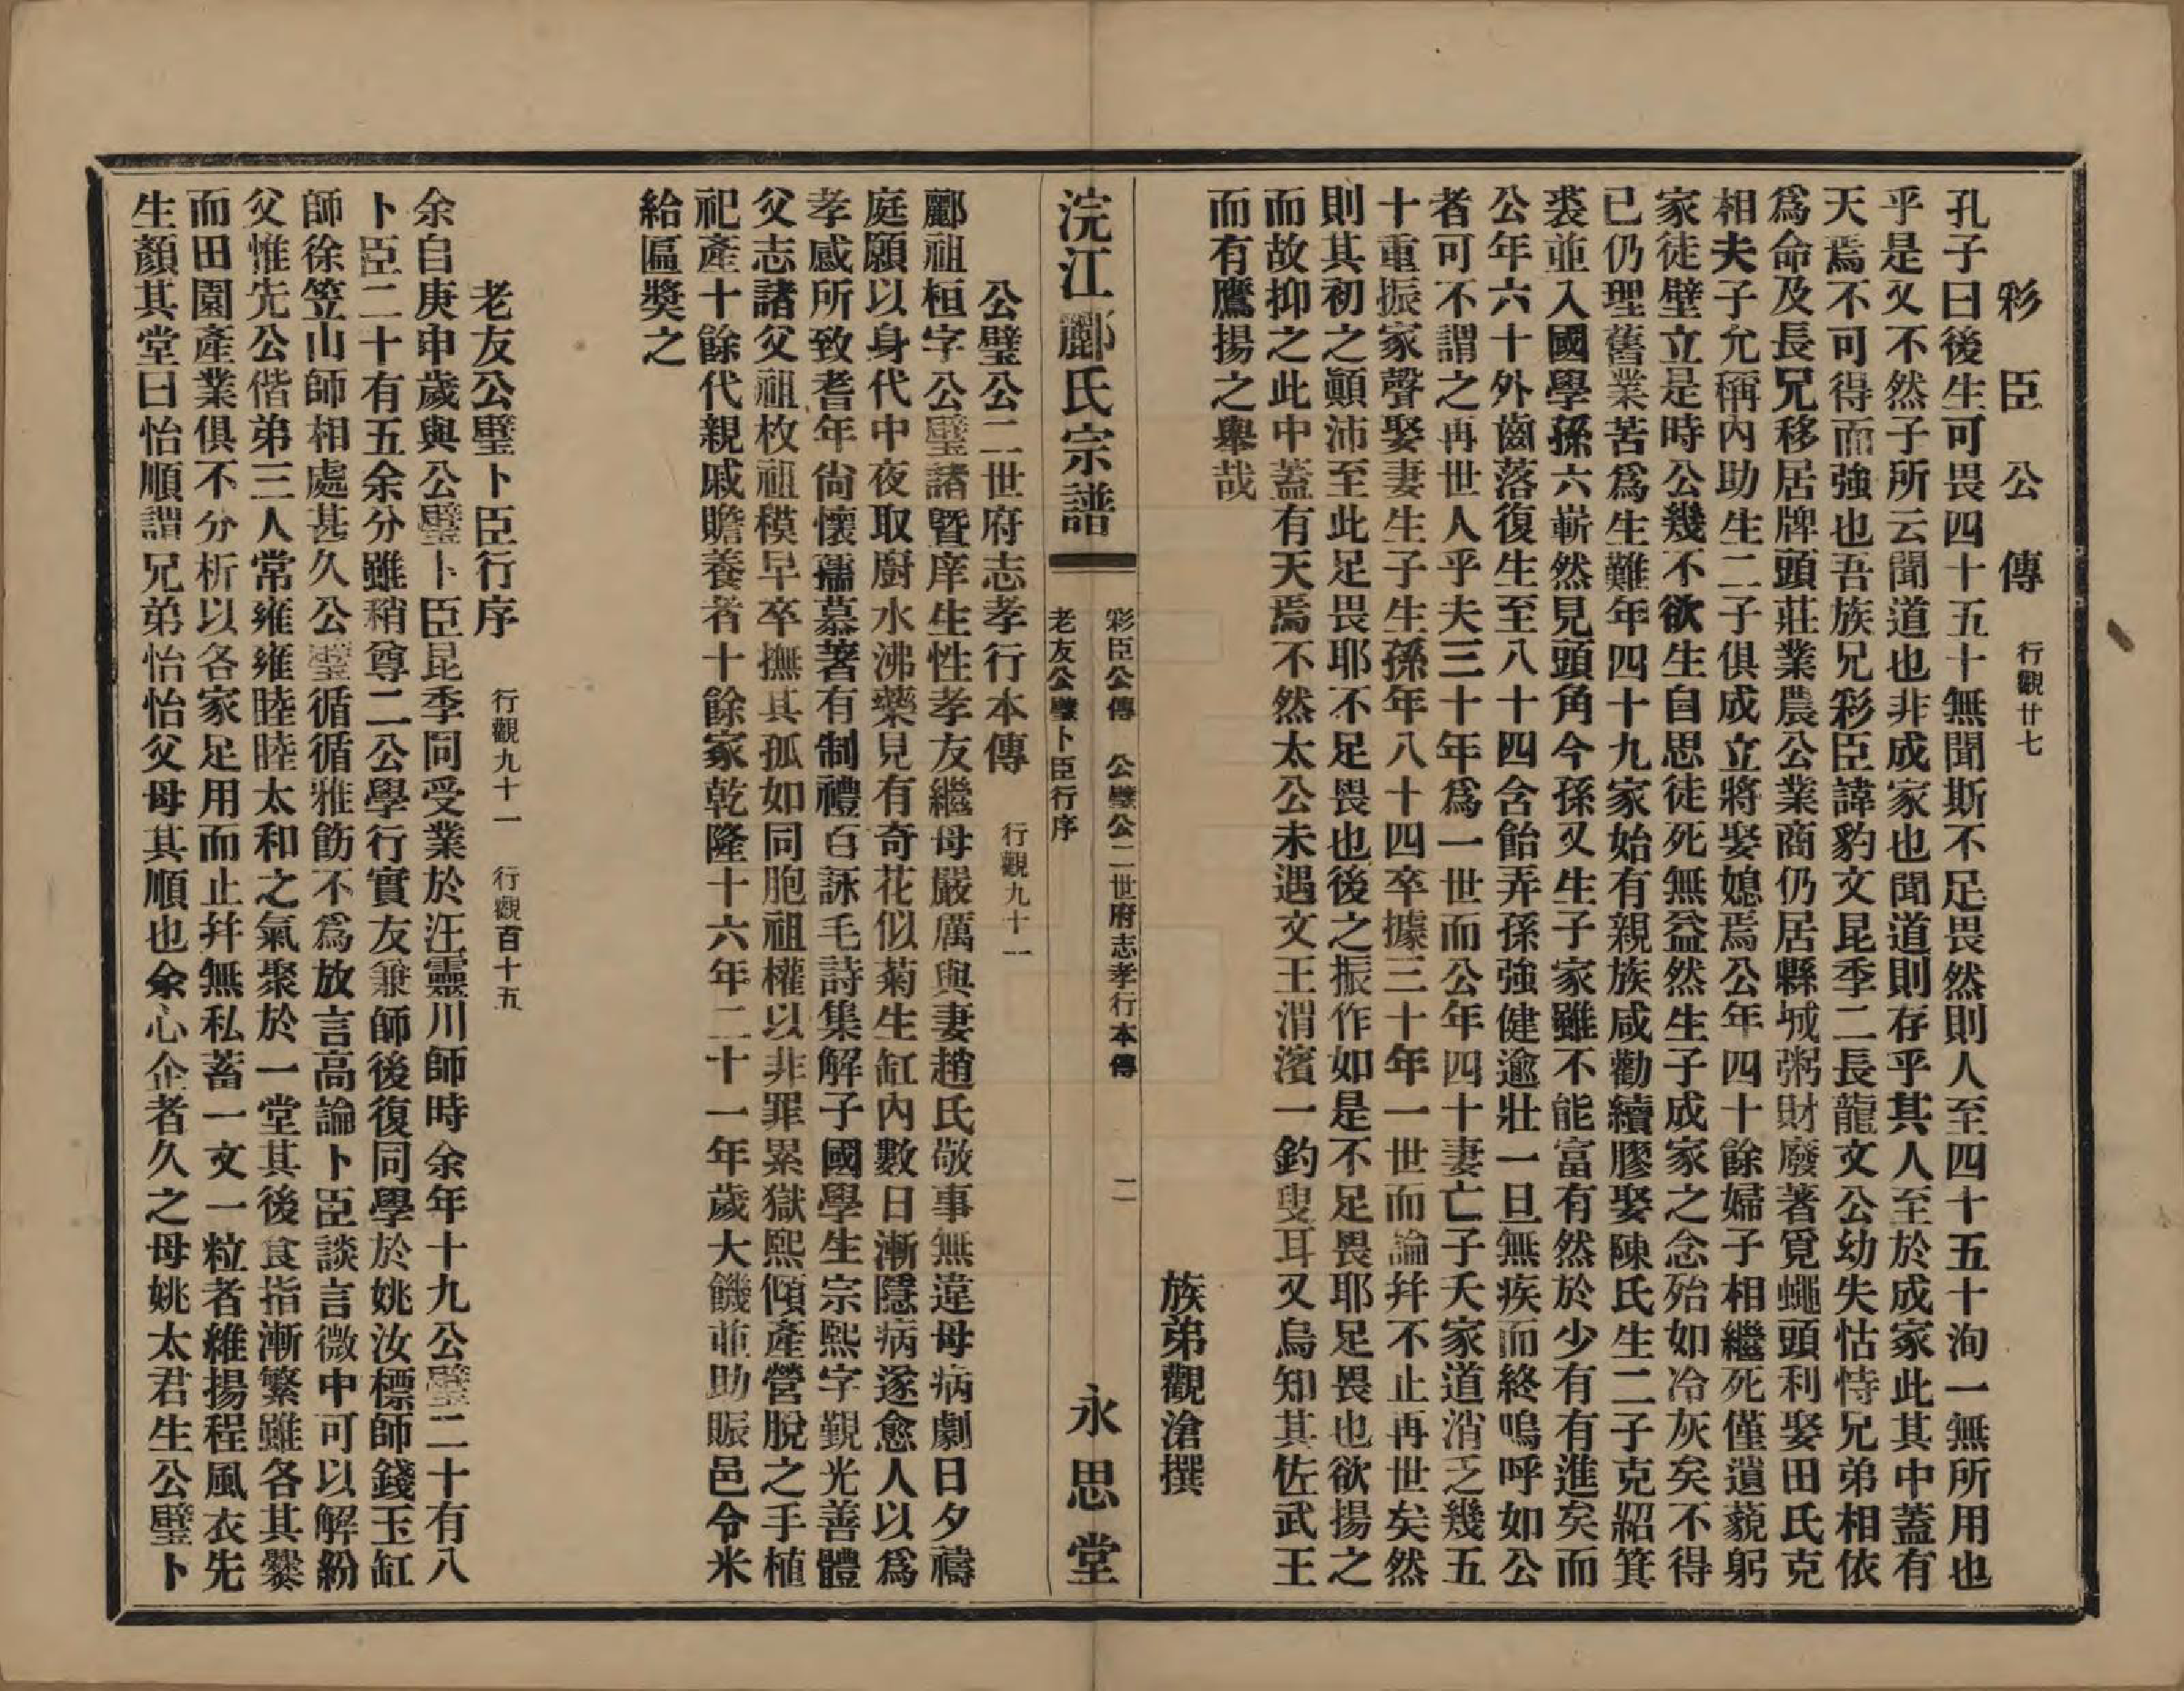 彩臣公傳　行觀廿七
孔子曰後生可畏四十五十無聞斯不足畏然則人至四十五十洵一無所用也
乎是又不然子所云聞道也非成家也聞道則存乎其人至於成家此其中蓋有
天焉不可得而強也吾族兄彩臣諱豹文昆季二長龍文公幼失怙恃兄弟相依
爲命及長兄移居牌頭莊業農公業商仍居縣城粥財廢著覓蠅頭利娶田氏克
相夫子允稱內助生二子俱成立將娶媳焉公年四十餘婦子相繼死僅遺藐躬
家徒壁立是時公幾不欲生自思徒死無益然生子成家之念殆如冷灰矣不得
已仍理舊業苦爲生難年四十九家始有親族咸勸續膠娶陳氏生二子克紹箕
裘並入國學孫六嶄然見頭角今孫又生子家雖不能富有然於少有有進矣而
公年六十外齒落復生至八十四含飴弄孫強健逾壯一旦無疾而終嗚呼如公
者可不謂之再世人乎夫三十年爲一世而公年四十妻亡子夭家道消乏幾五
十重振家聲娶妻生子生孫年八十四卒據三十年一世而論幷不止再世矣然
則其初之顚沛至此足畏耶不足畏也後之振作如是不足畏耶足畏也欲揚之
而故抑之此中蓋有天焉不然太公未遇文王渭濱一釣叟耳又烏知其佐武王
而有鷹揚之舉哉
族弟觀滄撰
浣江酈氏宗譜
彩臣公傳　公璧公二世府志孝行本傳
老友公璧卜臣行序
二
永思堂
公璧公二世府志孝行本傳　行觀九十一
酈祖桓字公璧諸暨庠生性孝友繼母嚴厲與妻趙氏敬事無違母病劇日夕禱
庭願以身代中夜取廚水沸藥見有奇花似菊生缸內數日漸隱病遂愈人以爲
孝感所致耆年尙懷孺慕著有制禮百詠毛詩集解子國學生宗熙字覲光善體
父志諸父祖枚祖模早卒撫其孤如同胞祖權以非罪累獄熙傾產營脫之手植
祀產十餘代親戚贍養者十餘家乾隆十六年二十一年歲大饑並助賑邑令米
給匾獎之
老友公璧卜臣行序　行觀九十一　行觀百十五
余自庚申歲與公璧卜臣昆季同受業於汪靈川師時余年十九公璧二十有八
卜臣二十有五余分雖稍尊二公學行實友兼師後復同學於姚汝標師錢玉缸
師徐笠山師相處甚久公璧循循雅飭不爲放言高論卜臣談言微中可以解紛
父惟先公偕弟三人常雍雍睦睦太和之氣聚於一堂其後食指漸繁雖各其爨
而田園產業俱不分析以各家足用而止幷無私蓄一文一粒者維揚程風衣先
生顏其堂曰怡順謂兄弟怡怡父母其順也余心企者久之母姚太君生公璧卜